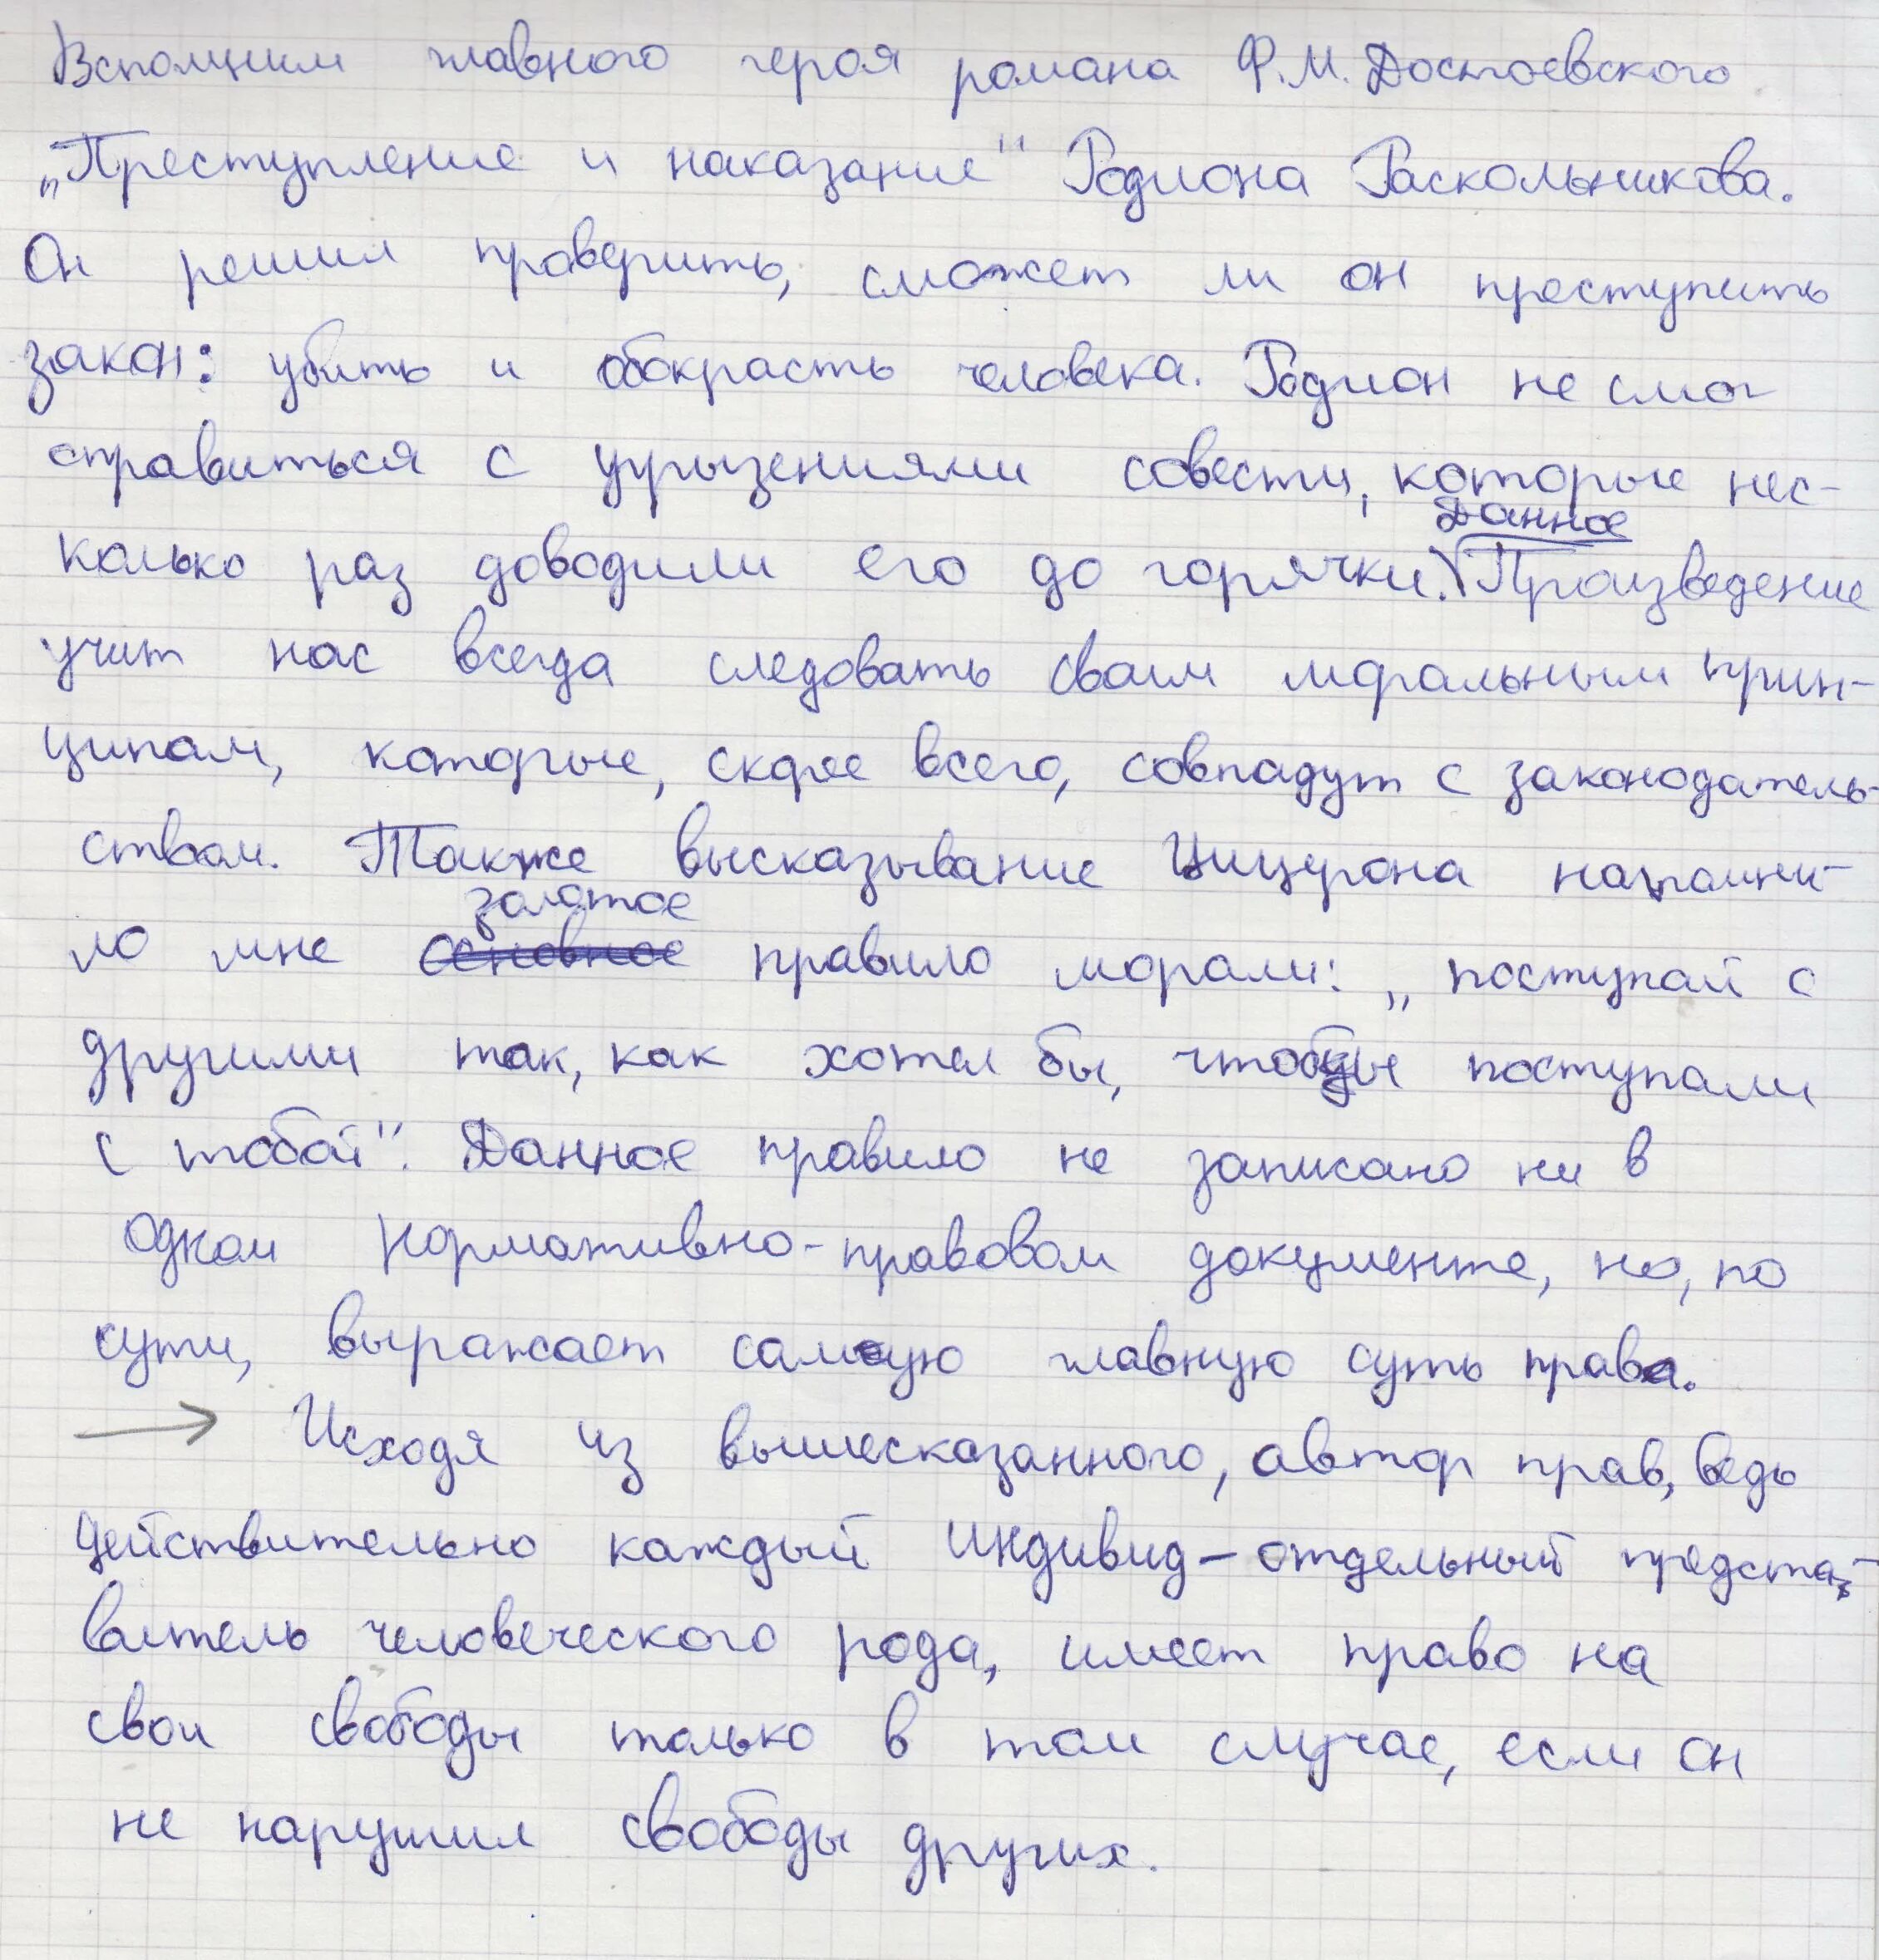 Вспомним главного героя романа Ф.М. Достоевского
„Преступление и наказание" Родиона Раскольникова.
Он решил проверить, сможет ли он преступить
закон: убить и обокрасть человека. Родион не смог
справиться с угрызениями совести, которые нес-
Данное
колько раз доводили его до горячки. Произведение
учит нас всегда следовать своим моральным прин-
ципам, которые, скорее всего, совпадут с законодатель-
ством. Также высказывание Цицерона напомни-
золотое
ло мне основное правило морали: „поступай с
другими так, как хотел бы, чтобы поступали
с тобой". Данное правило не записано ни в
одном нормативно-правовом документе, но, по
сути, выражает самую главную суть права.
→ Исходя из вышесказанного, автор прав, ведь
действительно каждый индивид – отдельный предста-
витель человеческого рода, имеет право на
свои свободы только в том случае, если он
не нарушил свободы других.